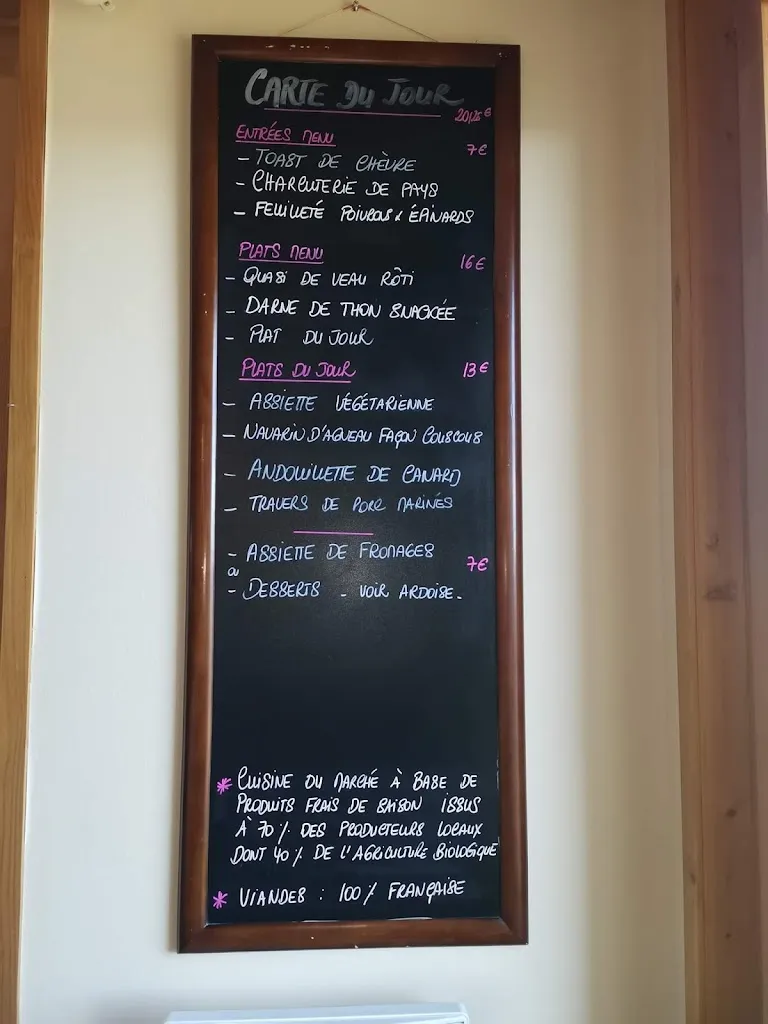 CARTE DU JOUR
ENTRÉES MENU 7€
- TOAST DE CHÈVRE
- CHARCUTERIE DE PAYS
- FEUILLETÉ POIVRONS & ÉPINARDS
PLATS MENU 16€
- QUASI DE VEAU RÔTI
- DARNE DE THON SNACKÉE
- PLAT DU JOUR
PLATS DU JOUR 13€
- ASSIETTE VÉGÉTARIENNE
- NAVARIN D'AGNEAU FAÇON COUSCOUS
- ANDOUILLETTE DE CANARD
- TRAVERS DE PORC MARINÉS
- ASSIETTE DE FROMAGES
ou 7€
- DESSERTS - VOIR ARDOISE.
* CUISINE DU MARCHÉ À BASE DE
PRODUITS FRAIS DE SAISON ISSUS
À 70% DES PRODUCTEURS LOCAUX
DONT 40% DE L'AGRICULTURE BIOLOGIQUE
* VIANDES : 100% FRANÇAISE